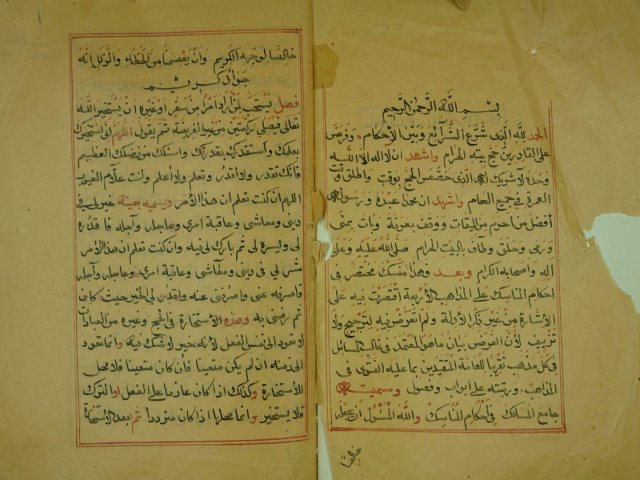 بسم الله الرحمن الرحيم
الحمد لله الذي شرع الشرائع وبين الأحكام، وفرض
على القادرين حج بيته الحرام واشهد ان لا اله الا الله
وحده لا شريك له الذى خصص الحج بوقت واطلق
العمرة في جميع العام واشهد ان محمدا عبده ورسوله
أفضل من احرم من الميقات ووقف بعرفة وبات بمنى
ورمى وحلق وطاف بالبيت الحرام صلى الله عليه وعلى
اله واصحابه الكرام وبعد فهذا منسك مختصر في
احكام المناسك على المذاهب الأربعة اقتصرت فيه على
الأشارة من غير ذكر الأدلة ولم أتعرض فيه لترجيح ولا
تزييف لأن الغرض بيان ما هو المعتمد في غالب المسائل
في كل مذهب تقريبا للعامة المقيدين بما عليه الفتوى في
المذاهب ورتبته على ابواب وفصول وسميته
جامع المسالك في أحكام المناسك والله المسئول ان يجعله
خالصا
خالصا لوجهه الكريم وان يعصمنا من الخطاء والزلل انه
جواد كريم
فصل يستحب لمن اراد امرا من سفر أو غيره ان يستخير الله
تعالى فيصلي ركعتين من غير الفريضة ثم يقول اللهم اني استخيرك
بعلمك وأستقدرك بقدرتك واسئلك من فضلك العظيم
فانك تقدر ولا اقدر وتعلم ولا اعلم وانت علام الغيوب
اللهم ان كنت تعلم ان هذا الأمر ويسميه بعينه خير لي في
ديني ومعاشي وعاقبة امري وعاجله وآجله فاقدره
لي ويسره لي ثم بارك لي فيه وان كنت تعلم ان هذا الأمر
شر لي في ديني ومعاشي وعاقبة امري وعاجله وآجله
فاصرفه عني واصرفني عنه واقدر لي الخير حيث كان
ثم رضني به وهذه الأستخارة في الحج وغيره من العبادات
لا تعود الى نفس الفعل لأنه خير لا شك فيه وانما تعود
الى زمنه ان لم يكن متعينا فان كان متعينا فلا محل
للأستخارة وكذلك اذا كان عازما على الفعل او الترك
فلا يستخير وانما محلها اذا كان مترددا ثم بعد الأستخارة